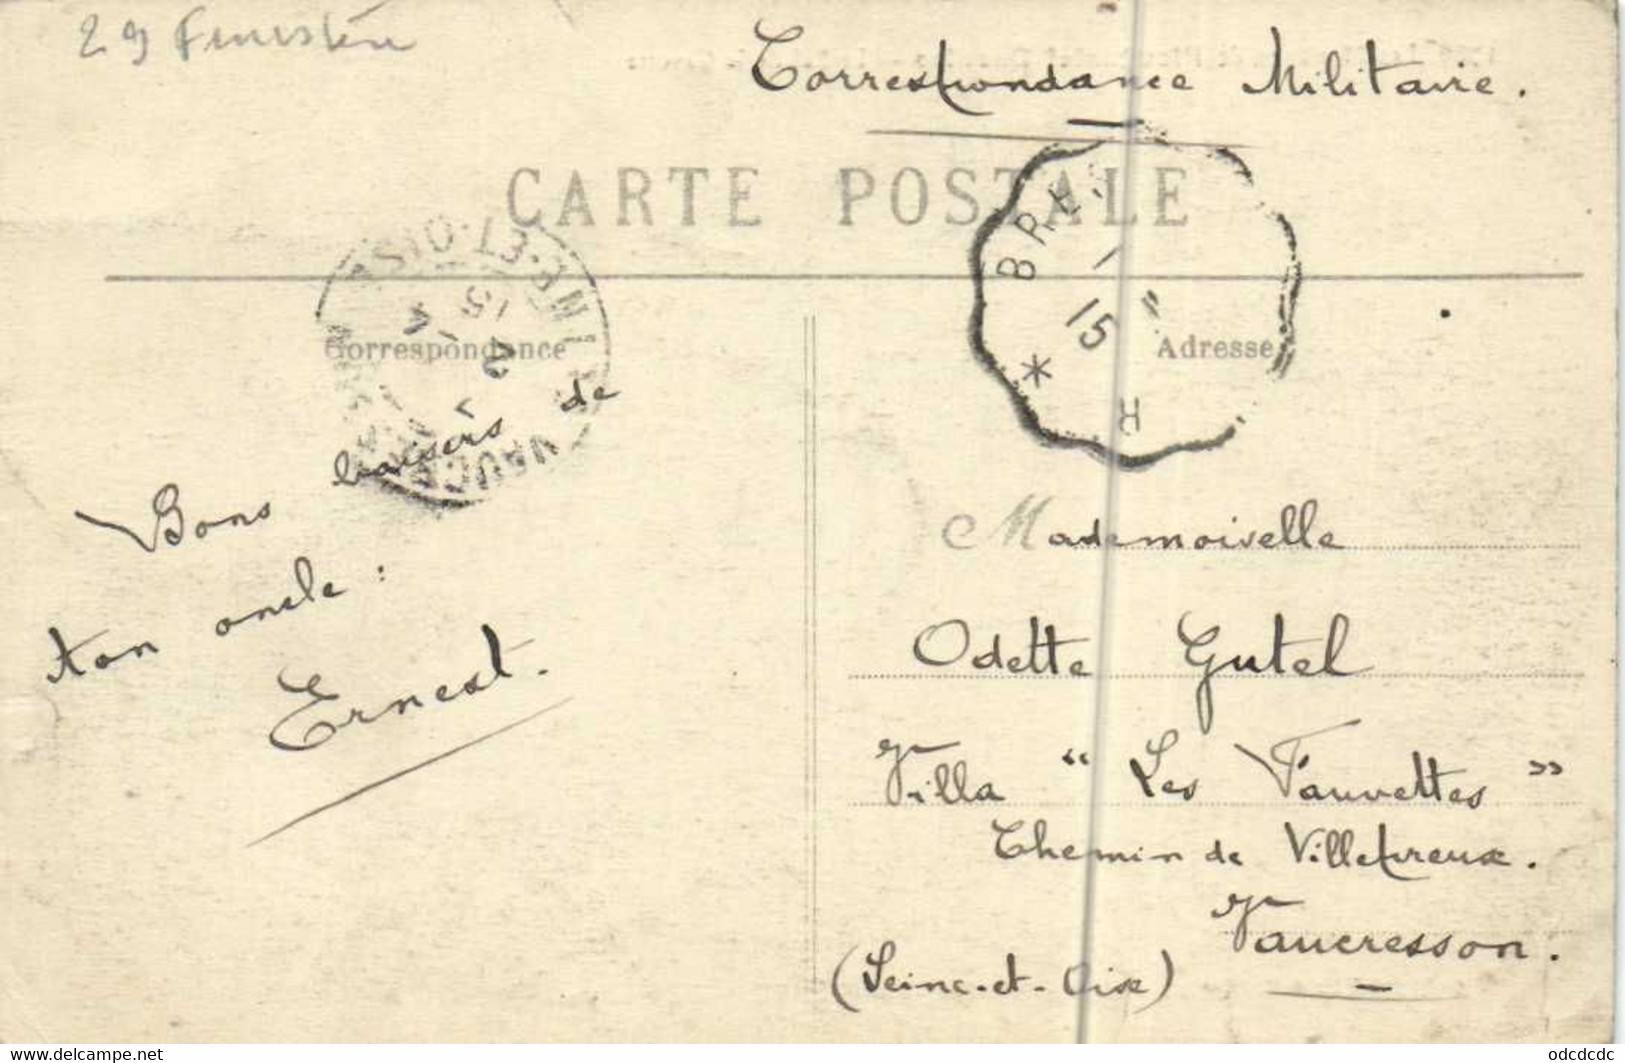 29 Finistère
Correspondance Militaire.
CARTE POSTALE
BRES
15
R
*
Correspondance
Adresse
Bons baisers de
ton oncle :
Ernest.
Mademoiselle
Odette Gutel
Villa " Les Fauvettes "
Chemin de Villepreux.
Vaucresson.
(Seine-et-Oise)
delcampe.net
odcdcdc